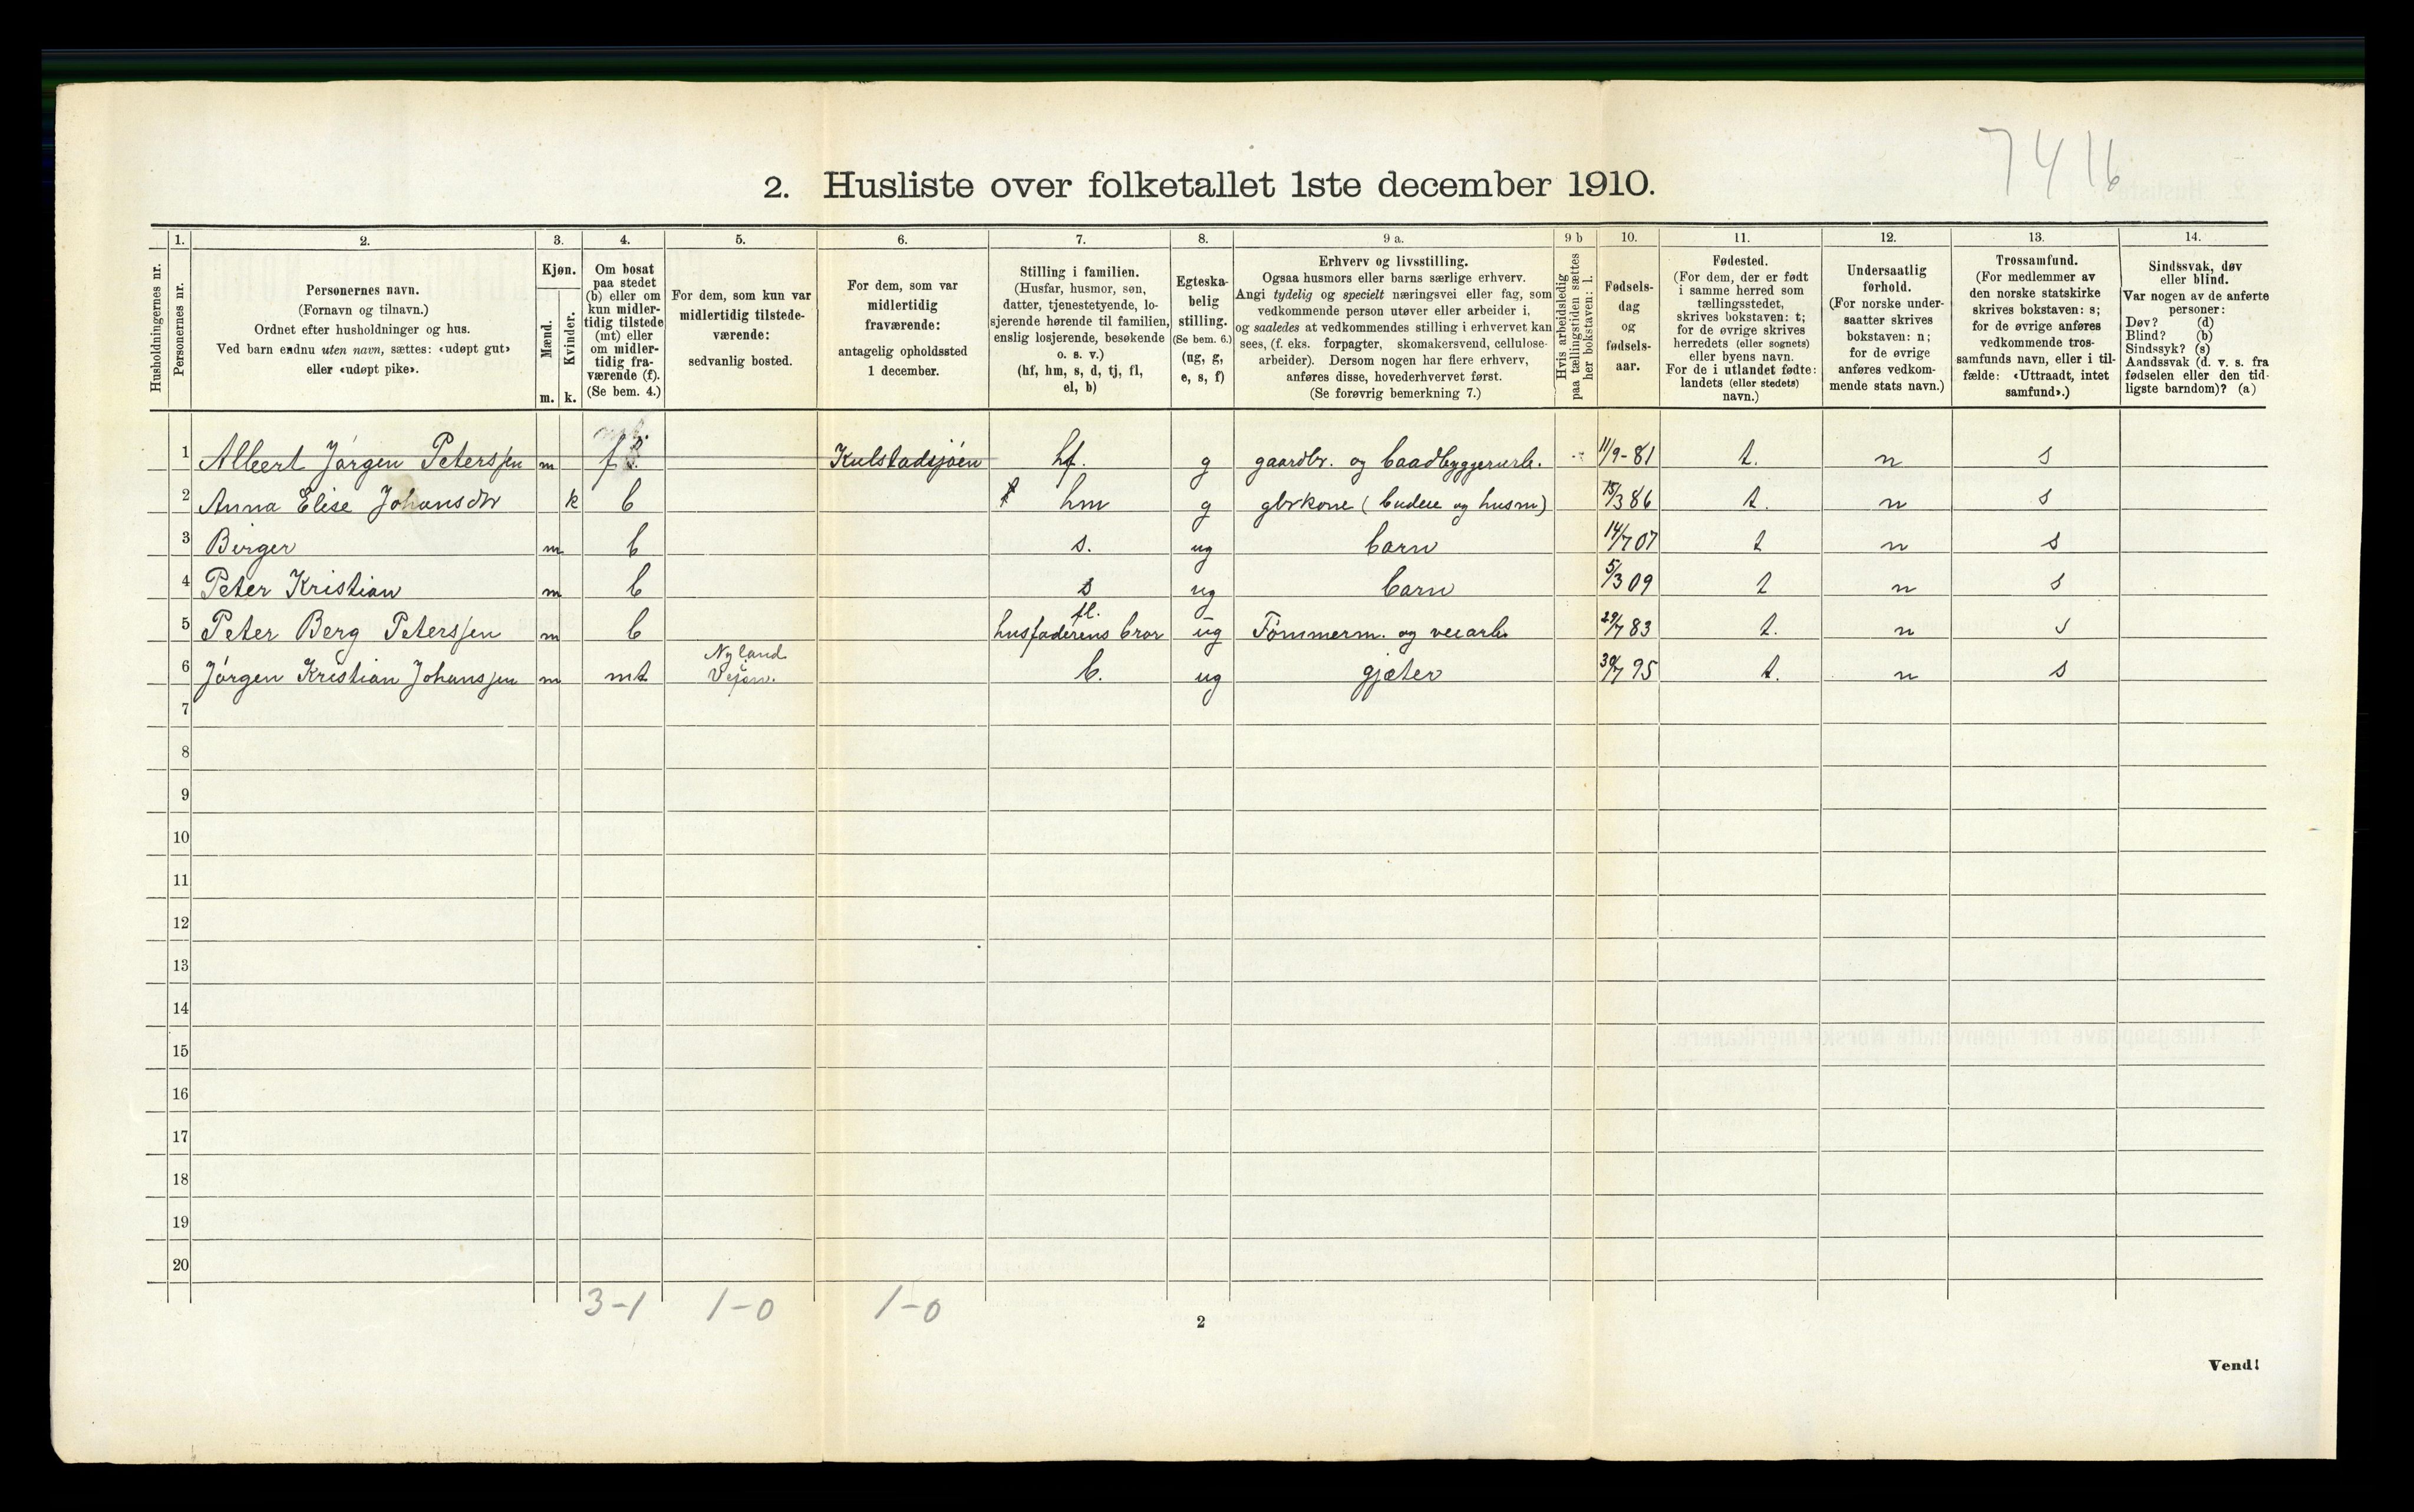 7416
2. Husliste over folketallet 1ste december 1910.
Husholdningernes nr.
1.
Personernes nr.
2.
Personernes navn.
(Fornavn og tilnavn.)
Ordnet efter husholdninger og hus.
Ved barn endnu uten navn, sættes: «udøpt gut»
eller «udøpt pike».
3.
Kjøn.
Mænd.
Kvinder.
m. k.
4.
Om bosat
paa stedet
(b) eller om
kun midler-
tidig tilstede
(mt) eller
om midler-
tidig fra-
værende (f).
(Se bem. 4.)
5.
For dem, som kun var
midlertidig tilstede-
værende:
sedvanlig bosted.
6.
For dem, som var
midlertidig
fraværende:
antagelig opholdssted
1 december.
7.
Stilling i familien.
(Husfar, husmor, søn,
datter, tjenestetyende, lo-
sjerende hørende til familien,
enslig losjerende, besøkende
o. s. v.)
(hf, hm, s, d, tj, fl,
el, b)
8.
Egteska-
belig
stilling.
(Se bem. 6.)
(ug, g,
e, s, f)
9 a.
Erhverv og livsstilling.
Ogsaa husmors eller barns særlige erhverv.
Angi tydelig og specielt næringsvei eller fag, som
vedkommende person utøver eller arbeider i,
og saaledes at vedkommendes stilling i erhvervet kan
sees, (f. eks. forpagter, skomakersvend, cellulose-
arbeider). Dersom nogen har flere erhverv,
anføres disse, hovederhvervet først.
(Se forøvrig bemerkning 7.)
9 b
Hvis arbeidsledig
paa tællingstiden sættes
her bokstaven: l.
10.
Fødsels-
dag
og
fødsels-
aar.
11.
Fødested.
(For dem, der er født
i samme herred som
tællingsstedet,
skrives bokstaven: t;
for de øvrige skrives
herredets (eller sognets)
eller byens navn.
For de i utlandet fødte:
landets (eller stedets)
navn.)
12.
Undersaatlig
forhold.
(For norske under-
saatter skrives
bokstaven: n;
for de øvrige
anføres vedkom-
mende stats navn.)
13.
Trossamfund.
(For medlemmer av
den norske statskirke
skrives bokstaven: s;
for de øvrige anføres
vedkommende tros-
samfunds navn, eller i til-
fælde: «Uttraadt, intet
samfund».)
14.
Sindssvak, døv
eller blind.
Var nogen av de anførte
personer:
Døv? (d)
Blind? (b)
Sindssyk? (s)
Aandssvak (d. v. s. fra
fødselen eller den tid-
ligste barndom)? (a)
1 Albert Jørgen Peterssen m f Kulstadsjøen hf. g gaardbr. og baadbyggerarb. 11/9-81 t. n s
2 Anna Elise Johansdtr k b hm g gbrkone (budeie og husm) 15/3 86 t. n s
3 Birger m b s. ug barn 14/7 07 t n s
4 Peter Kristian m b s ug barn 5/3 09 t n s
fl.
5 Peter Berg Peterssen m b husfaderens bror ug Tømmerm. og veiarb. 29/7 83 t. n s
Nyland
6 Jørgen Kristian Johanssen m mt Vefsn. b. ug gjæter 30/7 95 t. n s
7
8
9
10
11
12
13
14
15
16
17
18
19
20
3-1 1-0 1-0
2
Vend!